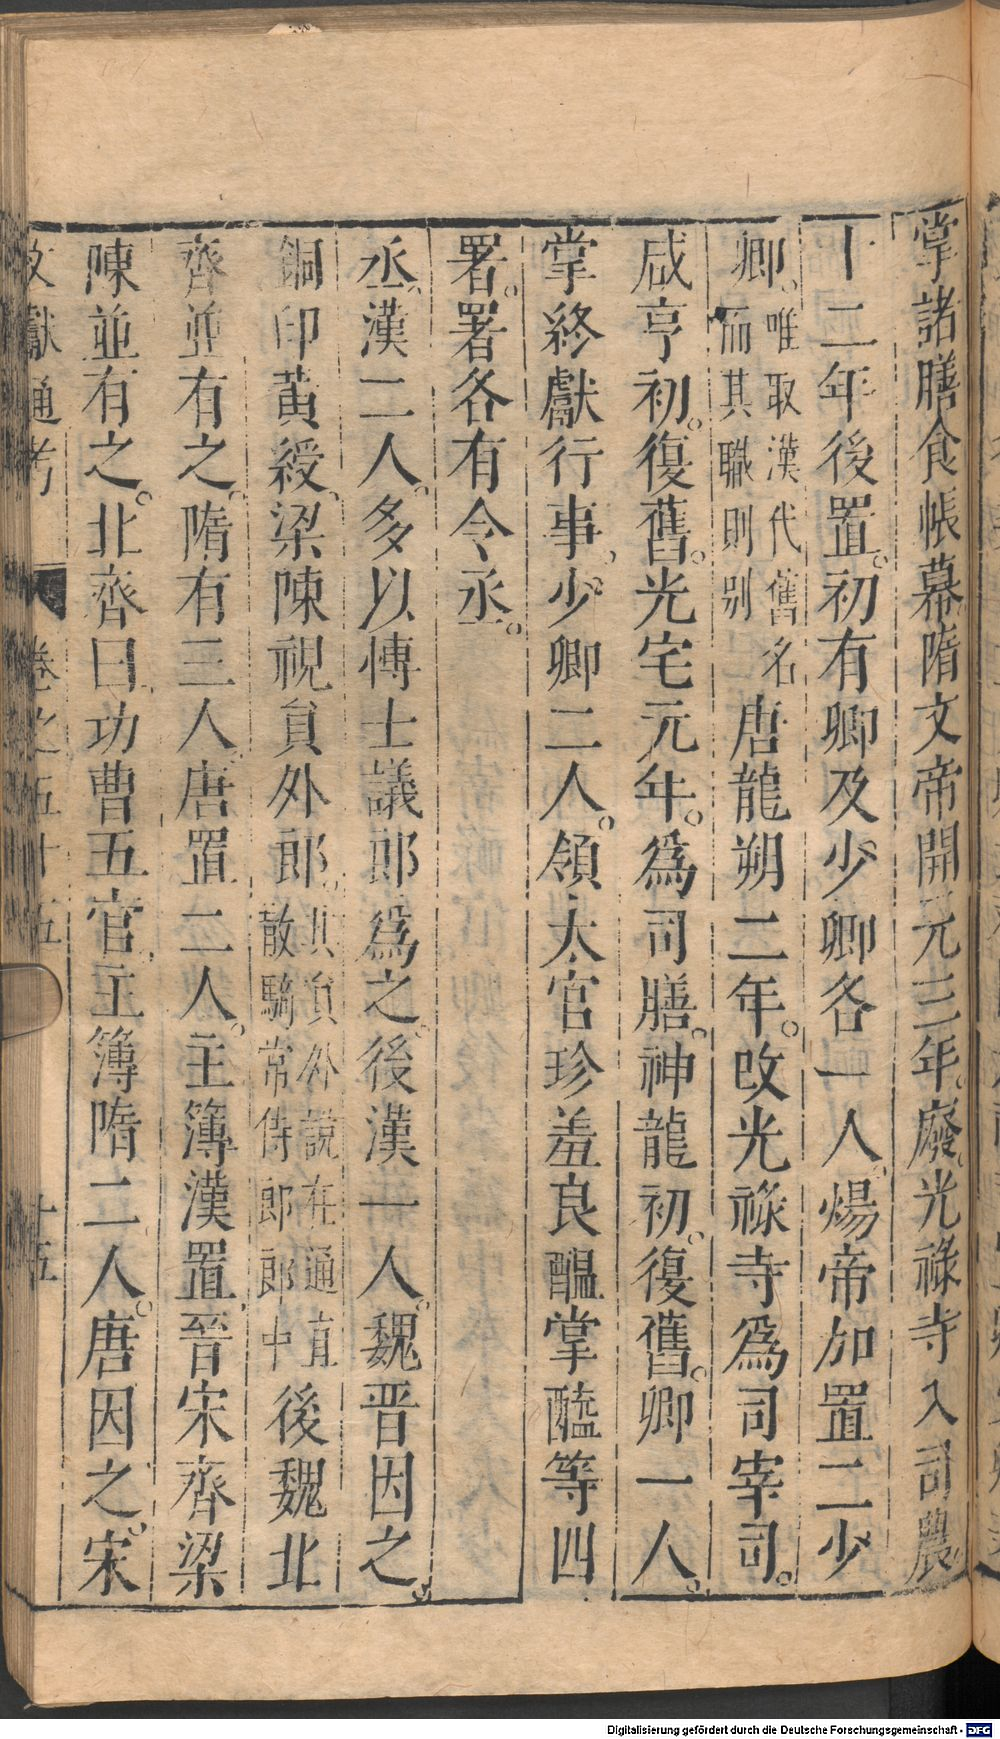 掌諸膳食帳幕隋文帝開元三年。廢光祿寺入司農
十二年後置。初有卿及少卿各一人。煬帝加置二少
卿。唯取漢代舊名
而其職則别
唐龍朔二年。改光祿寺爲司宰司。
咸亨初。復舊。光宅元年。爲司膳。神龍初。復舊。卿一人。
掌終獻行事。少卿二人。領太官珍羞良醖掌醢等四
署。署各有令丞。
丞。漢二人。多以博士議郎爲之。後漢一人。魏晋因之。
銅印黃綬。梁陳視貟外郎。
其貟外說在通直
散騎常侍郎郎中
後魏北
齊並有之。隋有三人。唐置二人。主簿漢置。晉宋齊梁
陳並有之。北齊曰功曹五官主簿隋二人。唐因之。宋
文獻通考
卷之五十五
十五
Digitalisierung gefördert durch die Deutsche Forschungsgemeinschaft - DFG